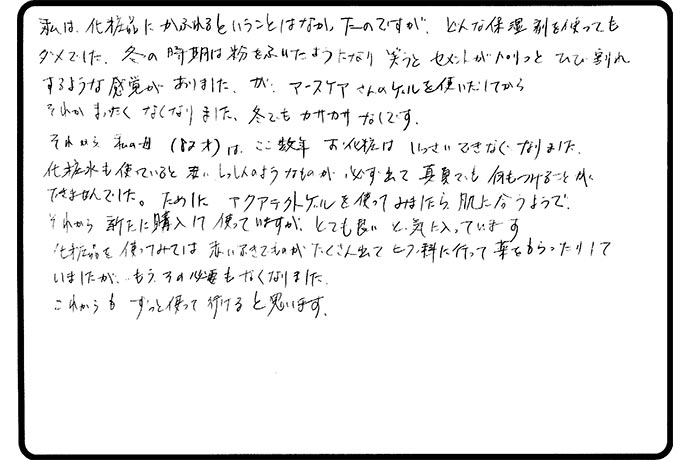 私は、化粧品にかぶれるということはなかったのですが、どんな保湿剤を使っても
ダメでした。冬の時期は粉をふいたようになり 笑うと セメントがパリっと ひび割れ
するような感覚がありました。が、アースケアさんのゲルを使いだしてから
それが まったく なくなりました。冬でも カサカサ なしです。
それから 私の母 (82才) は、ここ数年 お化粧は いっさいできなくなりました。
化粧水も使っていると 赤いしっしんのようなものが 必ず出て 真夏でも 何もつけることが
できませんでした。ためしに アクアテクトゲルを使ってみましたら 肌に合うようで、
それから 新たに購入して 使っていますが、とても良い と 気に入っています
化粧品を使ってみては 赤いふきでものが たくさん出て ヒフ科に行って 薬をもらったりして
いましたが、もう、その必要もなくなりました。
これからも ずっと使って行けると思います。